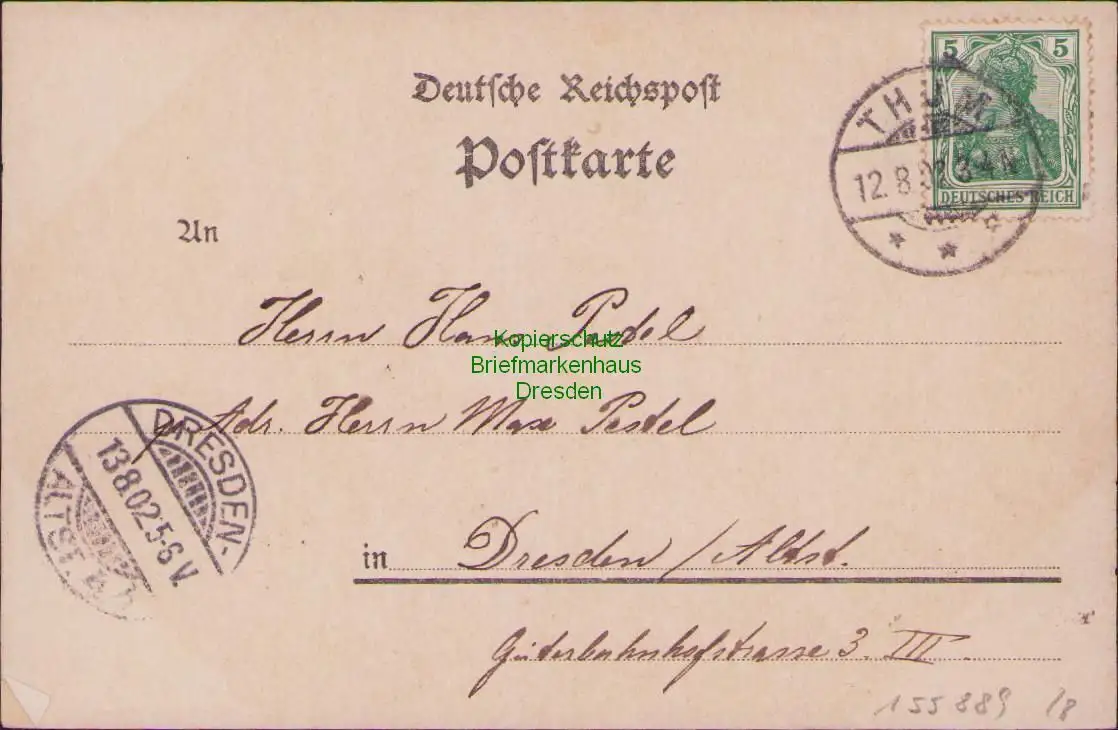 5 5
DEUTSCHES REICH
THUM
12.8.02 3-4 N
Deutsche Reichspost
Postkarte
An
Herrn Hans Pestel
Kopierschutz
Briefmarkenhaus
Dresden
Adr. Herrn Max Pestel
DRESDEN-
ALTST.
13.8.02.5-6V.
in Dresden/Altst.
Güterbahnhofstrasse 3. III
155889 /8